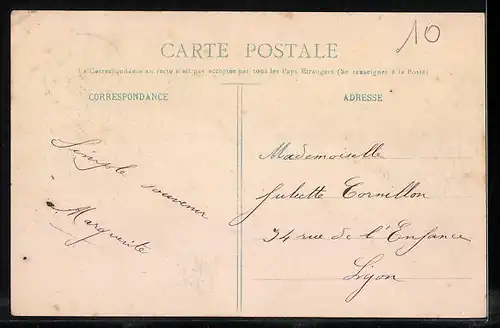 10
CARTE POSTALE
La Correspondance au recto n'est pas acceptée par tous les Pays Etrangers (Se renseigner à la Poste)
CORRESPONDANCE
Simple souvenir
Marguerite
ADRESSE
Mademoiselle
Juliette Cornillon
34 rue de l'Enfance
Lyon